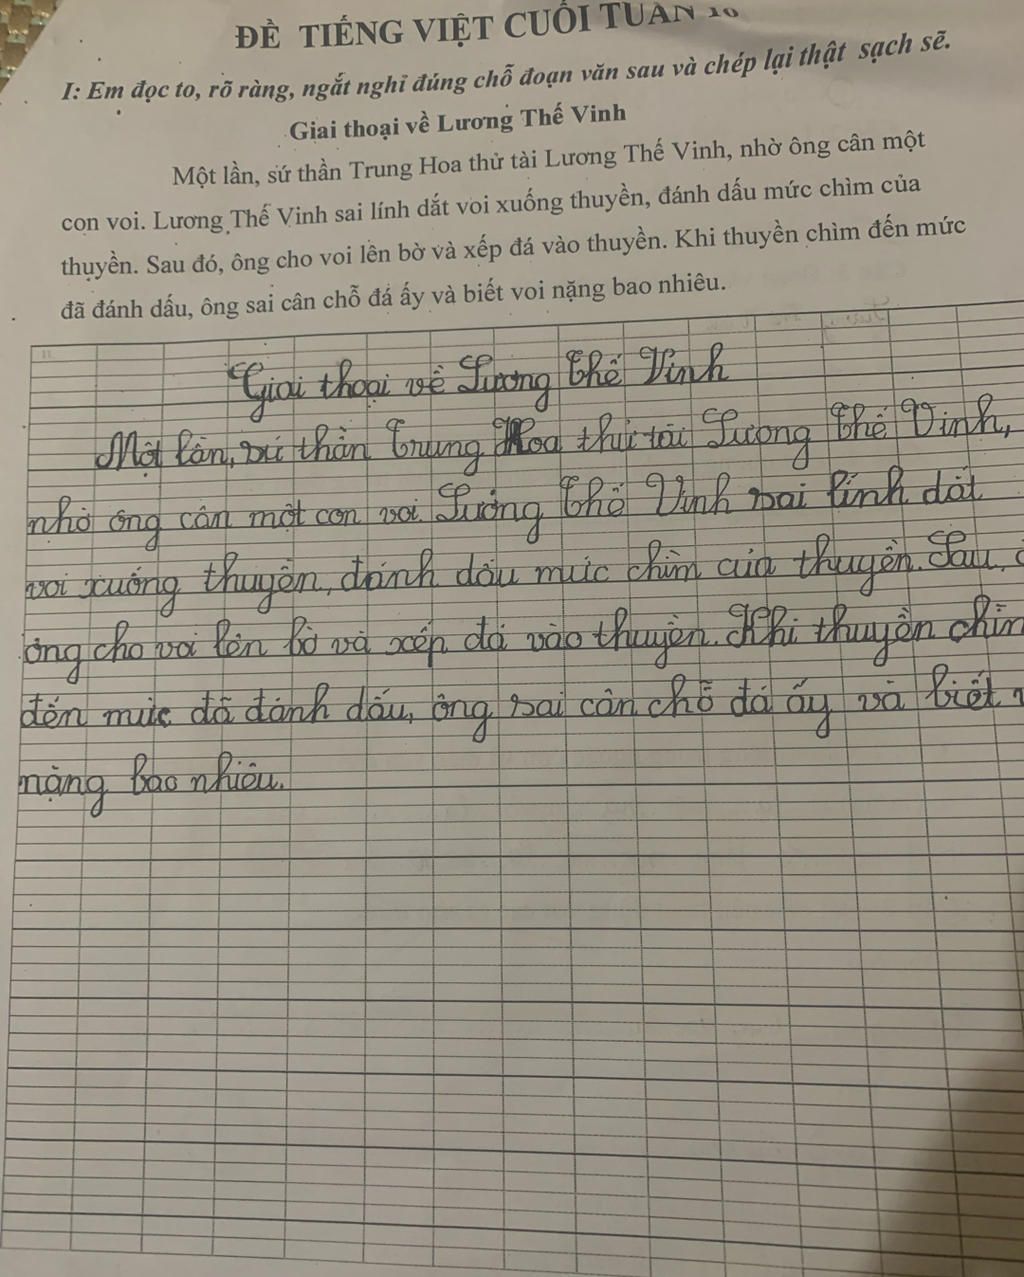 ĐỀ TIẾNG VIỆT CUỐI TUẦN
I: Em đọc to, rõ ràng, ngắt nghỉ đúng chỗ đoạn văn sau và chép lại thật sạch sẽ.
Giai thoại về Lương Thế Vinh
Một lần, sứ thần Trung Hoa thử tài Lương Thế Vinh, nhờ ông cân một
con voi. Lương Thế Vinh sai lính dắt voi xuống thuyền, đánh dấu mức chìm của
thuyền. Sau đó, ông cho voi lên bờ và xếp đá vào thuyền. Khi thuyền chìm đến mức
đã đánh dấu, ông sai cân chỗ đá ấy và biết voi nặng bao nhiêu.
Giai thoại về Lương Thế Vinh
Một lần, sứ thần Trung Hoa thử tài Lương Thế Vinh,
nhờ ông cân một con voi. Lương Thế Vinh sai lính dắt
voi xuống thuyền, đánh dấu mức chìm của thuyền. Sau
ông cho voi lên bờ và xếp đá vào thuyền. Khi thuyền chìm
đến mức đã đánh dấu, ông sai cân chỗ đá ấy và biết
nặng bao nhiêu.